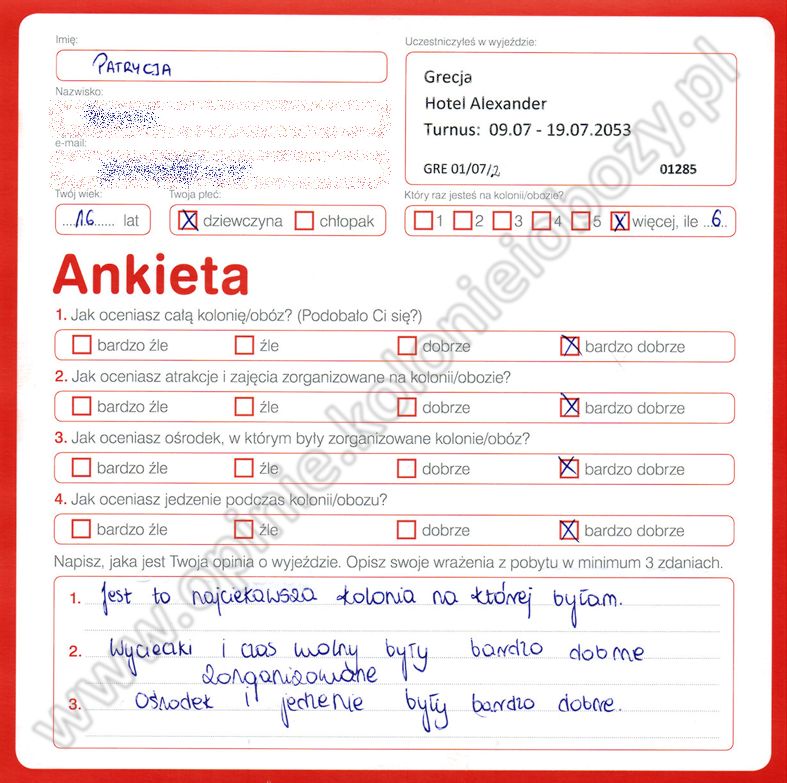 Imię:
PATRYCJA
Nazwisko:
e-mail:
Twój wiek:
....16...... lat
Twoja płeć:
X dziewczyna chłopak
Uczestniczyłeś w wyjeździe:
Grecja
Hotel Alexander
Turnus: 09.07 - 19.07.2053
GRE 01/07/2 01285
Który raz jesteś na kolonii/obozie?
1 2 3 4 5 X więcej, ile ...6..
Ankieta
1. Jak oceniasz całą kolonię/obóz? (Podobało Ci się?)
bardzo źle źle dobrze X bardzo dobrze
2. Jak oceniasz atrakcje i zajęcia zorganizowane na kolonii/obozie?
bardzo źle źle dobrze X bardzo dobrze
3. Jak oceniasz ośrodek, w którym były zorganizowane kolonie/obóz?
bardzo źle źle dobrze X bardzo dobrze
4. Jak oceniasz jedzenie podczas kolonii/obozu?
bardzo źle źle dobrze X bardzo dobrze
Napisz, jaka jest Twoja opinia o wyjeździe. Opisz swoje wrażenia z pobytu w minimum 3 zdaniach.
1. Jest to najciekawsza kolonia na której byłam.
2. Wycieczki i czas wolny były bardzo dobrze
zorganizowane
3. Ośrodek i jedzenie były bardzo dobre.
www.opinie.kolonieiobozy.pl